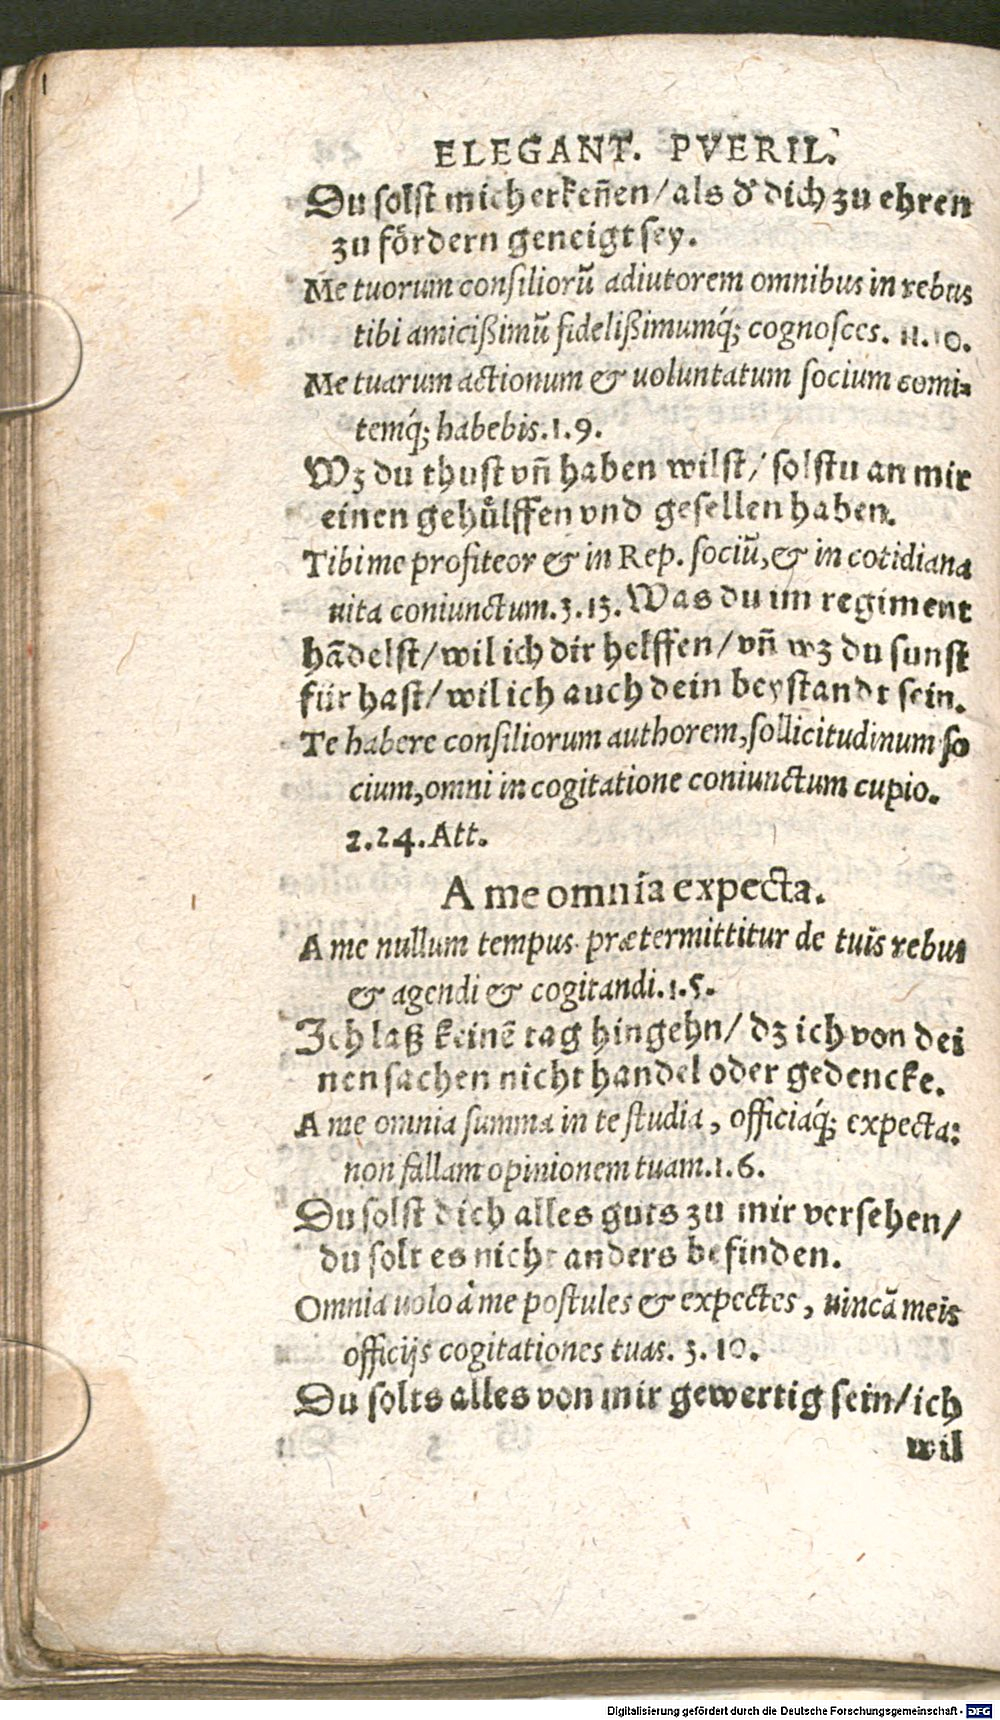 ELEGANT. PVERIL.
Du solst mich erkeñen/als d' dich zu ehren
zu fördern geneigt sey.
Me tuorum consiliorũ adiutorem omnibus in rebus
tibi amicißimũ fidelißimumq́; cognosces. 11.10.
Me tuarum actionum & uoluntatum socium comi-
temq́; habebis.1.9.
Wz du thust vñ haben wilst/ solstu an mir
einen gehülffen vnd gesellen haben.
Tibi me profiteor & in Rep. sociũ,& in cotidiana
uita coniunctum.3.13. Was du im regiment
hãdelst/wil ich dir helffen/vñ wz du sunst
für hast/wil ich auch dein beystandt sein.
Te habere consiliorum authorem,sollicitudinum so
cium,omni in cogitatione coniunctum cupio.
2.24.Att.
A me omnia expecta.
A me nullum tempus prætermittitur de tuis rebus
& agendi & cogitandi.1.5.
Ich laß keinẽ tag hingehn/ dz ich von dei
nen sachen nicht handel oder gedencke.
A me omnia summa in te studia, officiaq́; expecta:
non fallam opinionem tuam.1.6.
Du solst dich alles guts zu mir versehen/
du solt es nicht anders befinden.
Omnia uolo à me postules & expectes, uincã meis
officijs cogitationes tuas. 3.10.
Du solts alles von mir gewertig sein/ich
wil
Digitalisierung gefördert durch die Deutsche Forschungsgemeinschaft - DFG